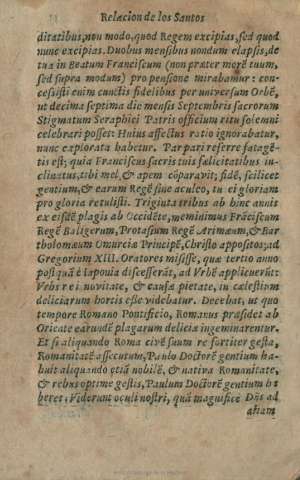 Relacion de los Santos
ditatibus, non modo, quod Regem excipias, sed quod
nunc excipias. Duobus mensibus nondum elapsis, de
tua in Beatum Franciscum (non præter morē tuum,
sed supra modum) pro pensione mirabamur: con-
cessisti enim cunctis fidelibus per universum Orbē,
ut decima septima die mensis Septembris sacrorum
Stigmatum Seraphici Patris officium ritu solemni
celebrari posset: Huius affectus ratio ignorabatur,
nunc explorata habetur. Par pari referre satagē-
tis est; quia Franciscus sacris tuis fælicitatibus in-
clinatus, tibi mel, & apem cōparavit; fidē, scilicet
gentium, & earum Regē sine aculeo, tu ei gloriam
pro gloria retulisti. Triginta tribus ab hinc annis
ex eisdē plagis ab Occidēte, meminimus Frāciscum
Regē Bungerum, Protasium Regē Arimæum, & Bar
tholomæum Omurciæ Principē, Christo appositos; ad
Gregorium XIII. Oratores misisse, quæ tertio anno
postquā è Iaponia discesserāt, ad Vrbē applicuerūt:
Vrbs rei novitate, & causæ pietate, in cælestium
deliciarum hortis esse videbatur. Decebat, ut quo
tempore Romano Pontificio, Romanus præsidet ab
Oriente earundē plagarum delicia ingeminarentur.
Et si aliquando Roma cive suum re fortiter gesta,
Romanitatē assecutum, Paulo Doctorē gentium ha-
buit aliquando etiā nobilē, & nativa Romanitate,
& rebus optime gestis, Paulum Doctorē gentium ha
beret: Viderunt oculi nostri, quā magnifice Dñs ad
etiam